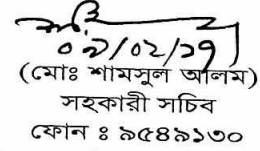 ০৯/০২/১৭
(মোঃ শামসুল আলম)
সহকারী সচিব
ফোন ঃ ৯৫৪৯১৩০